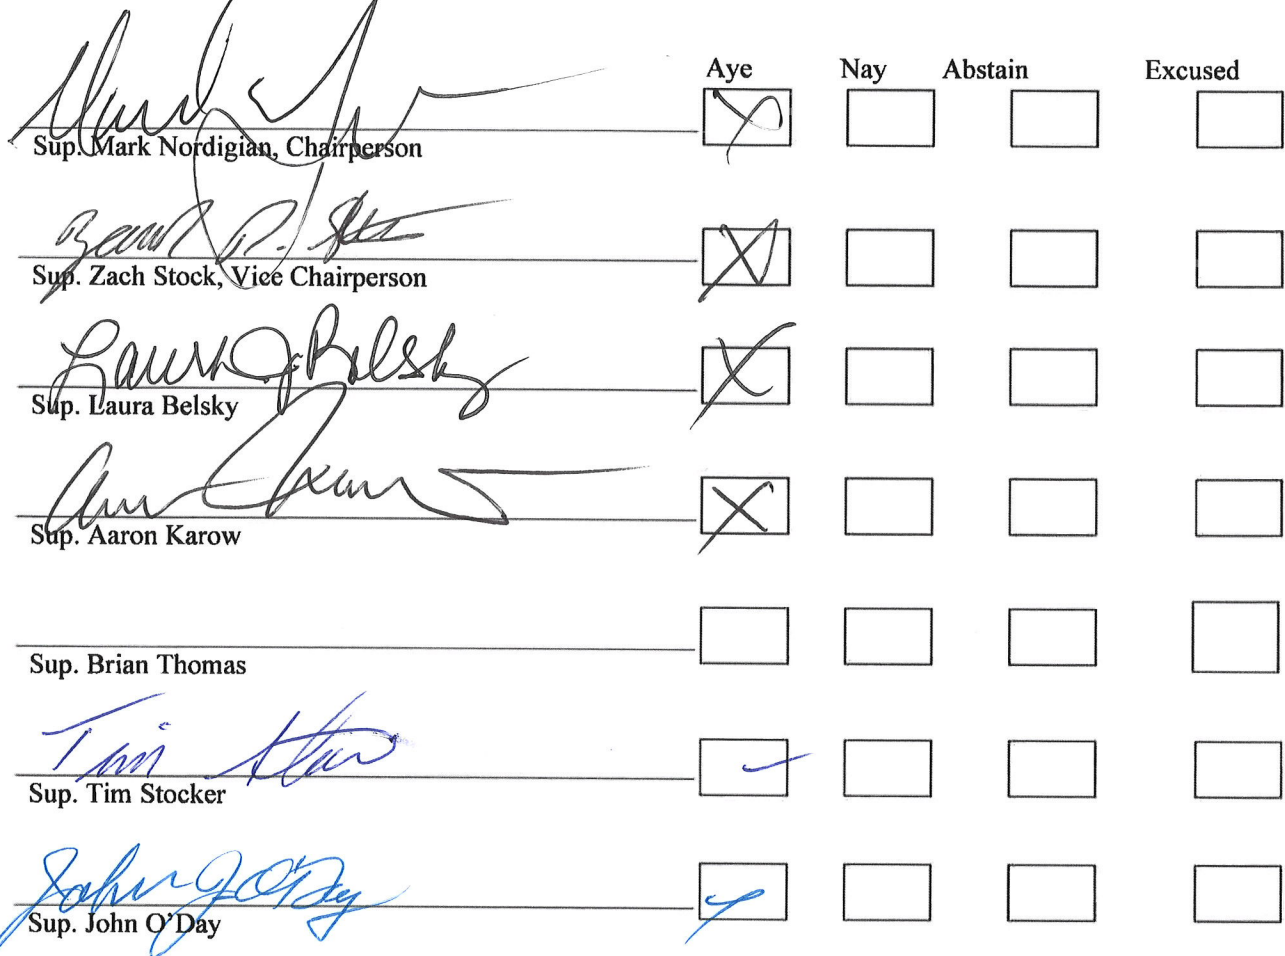 Aye Nay Abstain Excused
Sup. Mark Nordigian, Chairperson
Zach D. Stock
Sup. Zach Stock, Vice Chairperson
Laura J. Belsky
Sup. Laura Belsky
Sup. Aaron Karow
Sup. Brian Thomas
Tim
Sup. Tim Stocker
John J O'Day
Sup. John O'Day